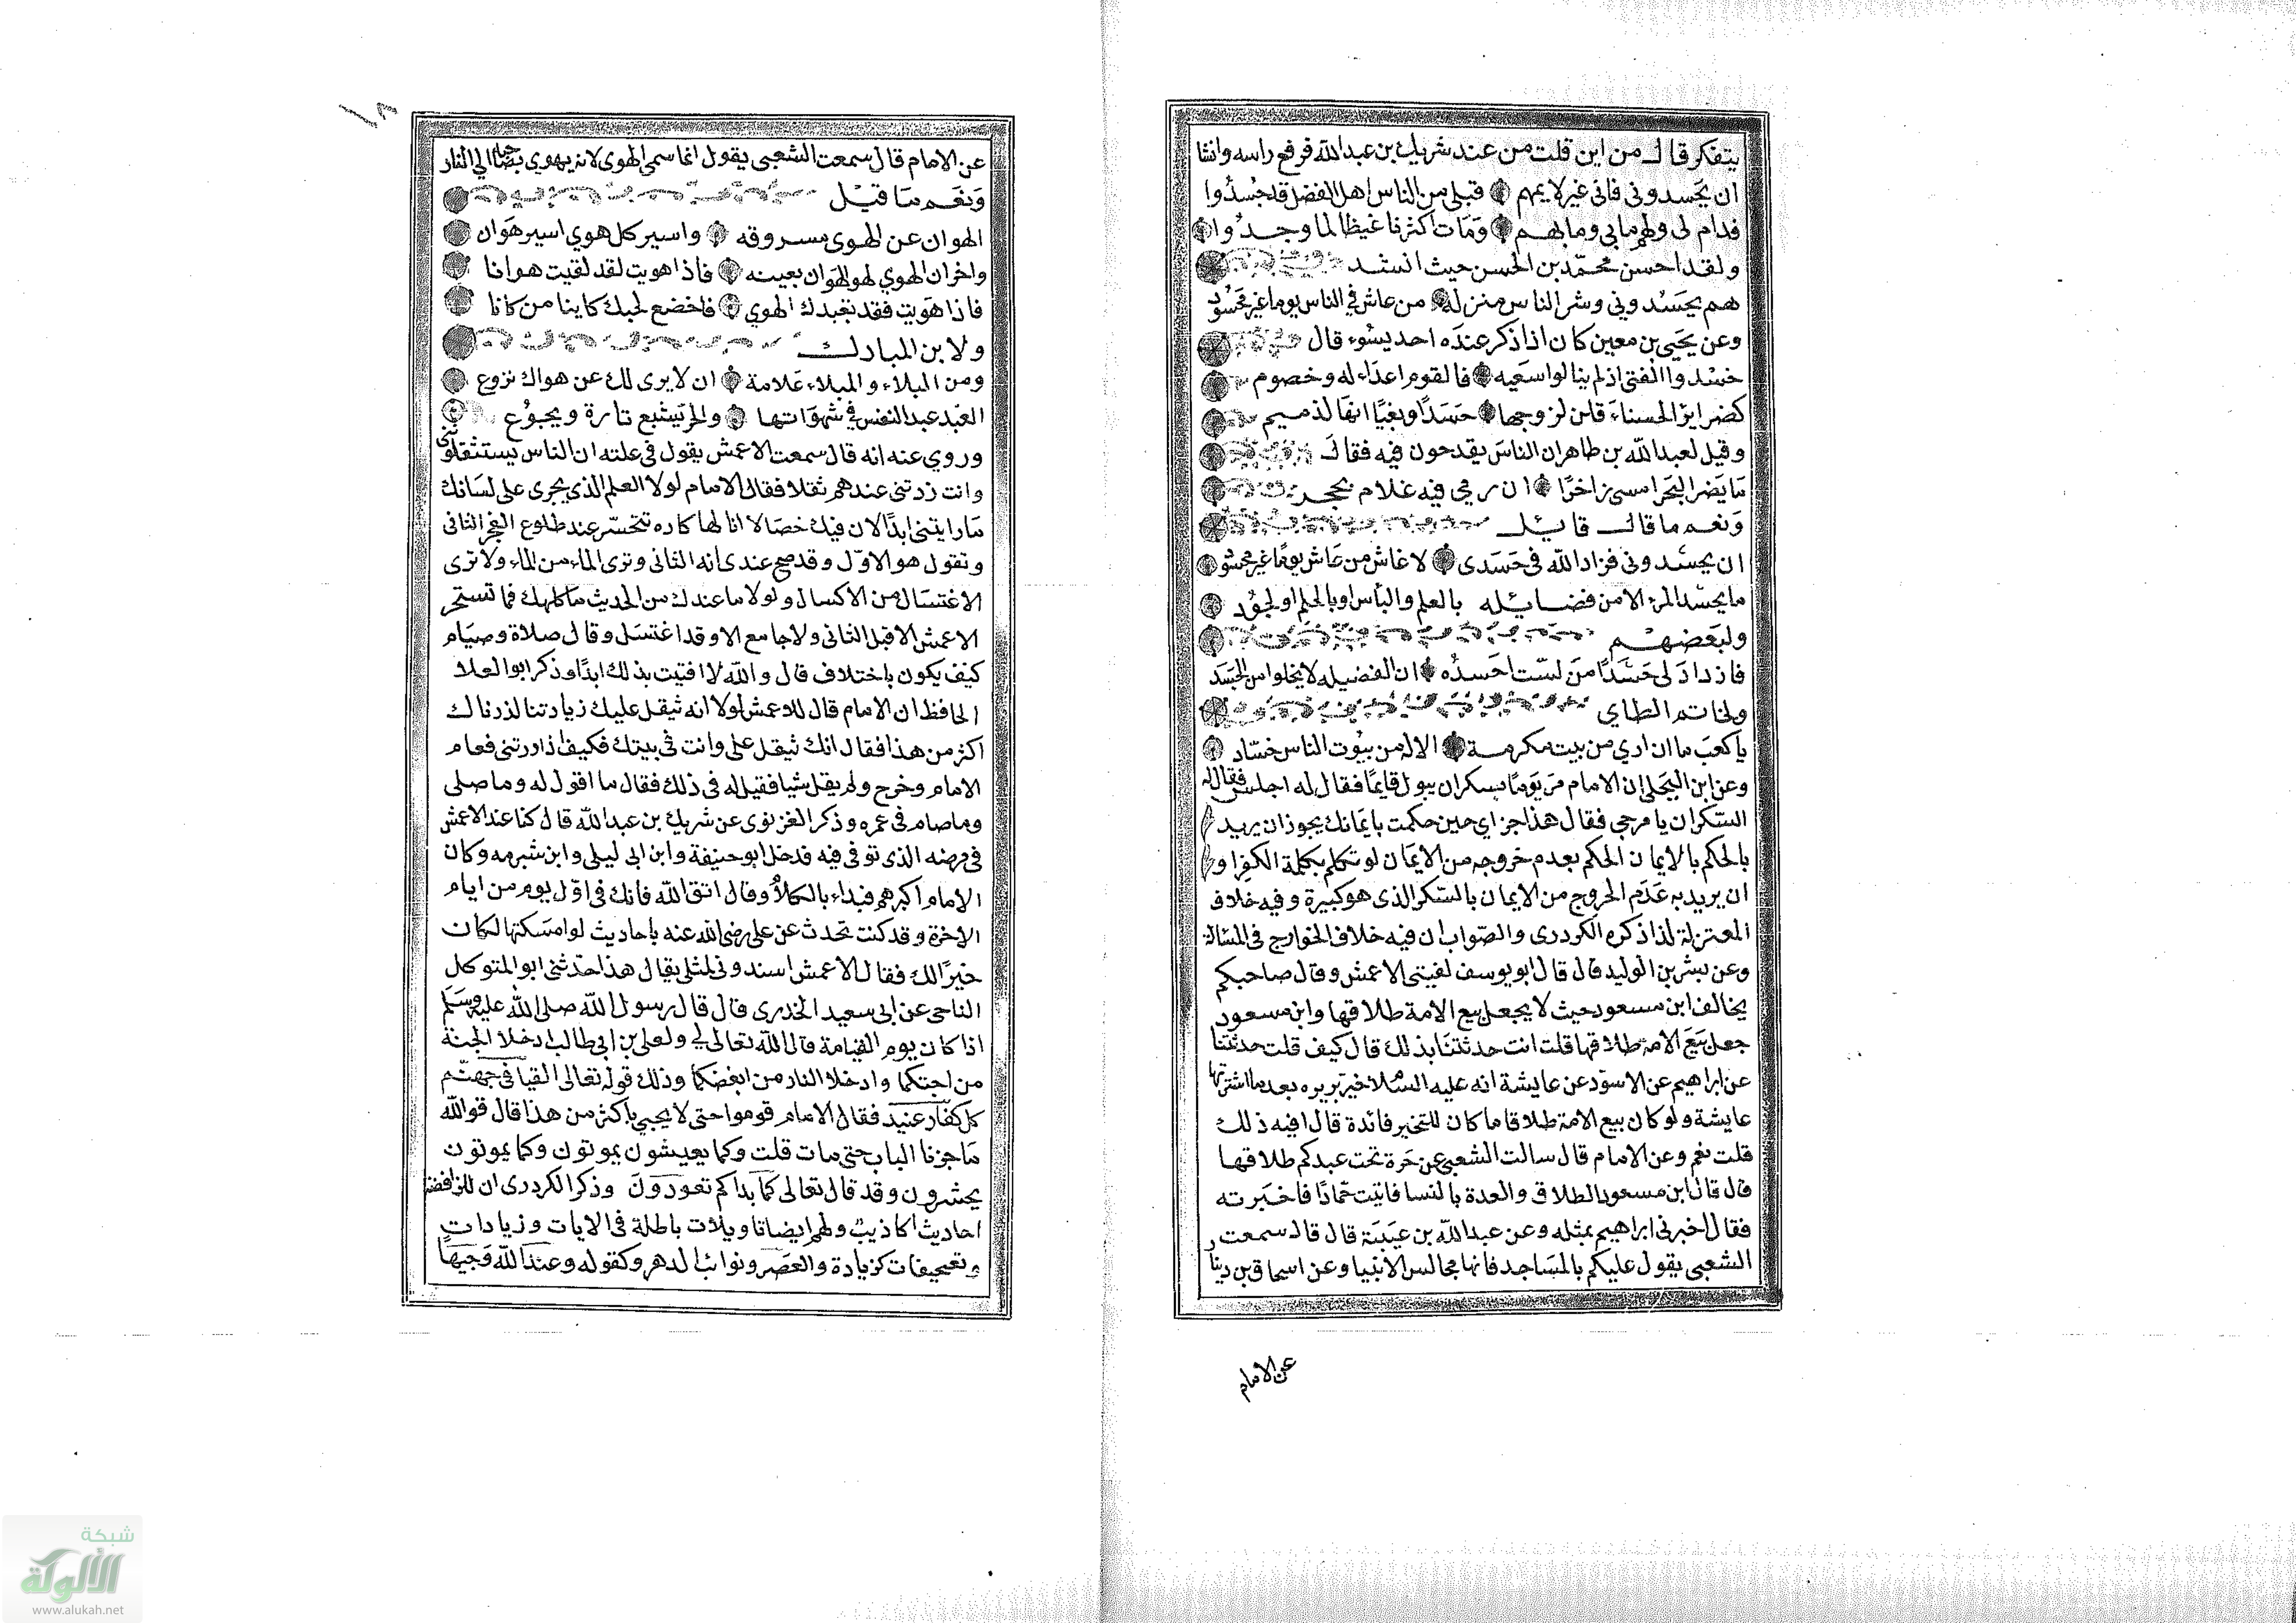 يتفكر قال من اين قلت من عند شريك بن عبدالله فرفع راسه وانشا
ان يحسدوني فاني غير لايمهم قبلي من الناس اهل الفضل قد حسدوا
فدام لي ولهم ما بي وما بهم ومات اكثرنا غيظا لما وجدوا
ولقد احسن محمد بن الحسن حيث انشد
هم يحسدوني وشر الناس منزلة من عاش في الناس يوما غير محسود
وعن يحيى بن معين كان اذا ذكر عنده احد يسوء قال
حسدوا الفتى اذ لم ينالوا سعيه فالقوم اعداء له وخصوم
كضراير الحسناء قلن لزوجها حسدا وبغيا انها لذميم
وقيل لعبدالله بن طاهر ان الناس يقدحون فيه فقال
ما يضر البحر امسى زاخرا ان رمي فيه غلام بحجر
ونعم ما قال قائل
ان يحسدوني فزاد الله في حسدي لا عاش من عاش يوما غير محسود
ما يحسد المرء الا من فضائله بالعلم والباس او بالحلم او الجود
ولبعضهم
فازداد لي حسدا من لست احسده ان الفضيله لا يخلوا من الحسد
ولحاتم الطاي
يا كعب ما ان ارى من بيت مكرمة الا له من بيوت الناس حساد
وعن ابن البجلي ان الامام مر يوما بسكران يبول قايما فقال له اجلس فقال له
السكران يا مرجي فقال هذا جزاي حين حكمت بايمانك يجوز ان يريد
بالحكم بالايمان الحكم بعدم خروجه من الايمان لو تكلم بكلمة الكفر او
ان يريد به عدم الخروج من الايمان بالسكر الذي هو كبيرة وفيه خلاف
المعتزلة لذا ذكره الكردري والصواب ان فيه خلاف الخوارج في المسالة
وعن بشر بن الوليد قال قال ابو يوسف لقيني الاعمش وقال صاحبكم
يخالف ابن مسعود حيث لا يجعل بيع الامة طلاقها وابن مسعود
جعل بيع الامة طلاقها قلت انت حدثتنا بذلك قال كيف قلت حدثتنا
عن ابراهيم عن الاسود عن عايشة انه عليه السلام خير بريره بعد ما اشترتها
عايشة ولو كان بيع الامة طلاقا ما كان للتخير فائدة قال افيه ذلك
قلت نعم وعن الامام قال سالت الشعبي عن حرة تحت عبد كم طلاقها
قال قال ابن مسعود الطلاق والعدة بالنسا فاتيت حمادا فاخبرته
فقال اخبرني ابراهيم بمثله وعن عبدالله بن عيينة قال قال سمعت
الشعبي يقول عليكم بالمساجد فانها مجالس الانبيا وعن اسحاق بن دينار
عن الامام
١٨
عن الامام قال سمعت الشعبي يقول انما سمي الهوى لانه يهوي بصاحبه الي النار
ونعم ما قيل
الهوان عن الهوى مسروقه واسير كل هوي اسير هوان
واخر ان الهوي لهو الهوان بعينه فاذا هويت لقد لقيت هوانا
فاذا هويت فقد تعبدك الهوي فاخضع لحبك كاينا من كانا
ولابن المبارك
ومن البلاء والبلاء علامة ان لا يرى لك عن هواك نزوع
العبد عبد النفس في شهواتها والحر يشبع تارة ويجوع
وروي عنه انه قال سمعت الاعمش يقول في علته ان الناس يستثقلونني
وانت زدتني عندهم ثقلا فقال الامام لولا العلم الذي يجري على لسانك
ما رايتني ابدا لان فيك خصالا انا لها كاره تتحسر عند طلوع الفجر الثاني
وتقول هو الاول وقد صح عندي انه الثاني وترى الماء من الماء ولا ترى
الاغتسال من الاكسال ولولا ما عندك من الحديث ما كلمك فما تسحر
الاعمش الا قبل الثاني ولا جامع الا وقد اغتسل وقال صلاة وصيام
كيف يكون باختلاف قال والله لا افتيت بذلك ابدا وذكر ابو العلا
الحافظ ان الامام قال للاعمش لولا انه ثيقل عليك زيادتنا لذرناك
اكثر من هذا فقال انك ثيقل علي وانت في بيتك فكيف اذا ورتني فعام
الامام وخرج ولم يقل شيا فقيل له في ذلك فقال ما اقول له وما صلى
وما صام في عمره وذكر الغزنوي عن شريك بن عبدالله قال كنا عند الاعمش
في مرضه الذي توفي فيه فدخل ابو حنيفة وابن ابي ليلى وابن شبرمه وكان
الامام اكبرهم فبداء بالكلام وقال اتق الله فانك في اول يوم من ايام
الاخرة وقد كنت تحدث عن علي رضي الله عنه باحاديث لو امسكتها لكان
خيرا لك فقال الاعمش اسندوني لمثلي يقال هذا حدثني ابو المتوكل
الناجي عن ابي سعيد الخدري قال قال رسول الله صلى الله عليه وسلم
اذا كان يوم القيامة قال الله تعالى لي ولعلي بن ابي طالب ادخلا الجنة
من احبكما وادخلا النار من ابغضكما وذلك قوله تعالى القيا في جهنم
كل كفار عنيد فقال الامام قوموا حتى لا يجيئ باكثر من هذا قال فوالله
ما جزنا الباب حتى مات قلت وكما يعيشون يموتون وكما يموتون
يحشرون وقد قال تعالى كما بداكم تعودون وذكر الكردري ان للرافضة
احاديث اكاذيب ولهم ايضا تاويلات باطلة في الايات وزيادات
وتصحيفات كزيادة والعصر ونوائب الدهر وكقوله وعند الله وجيها
شبكة
الألوكة
www.alukah.net